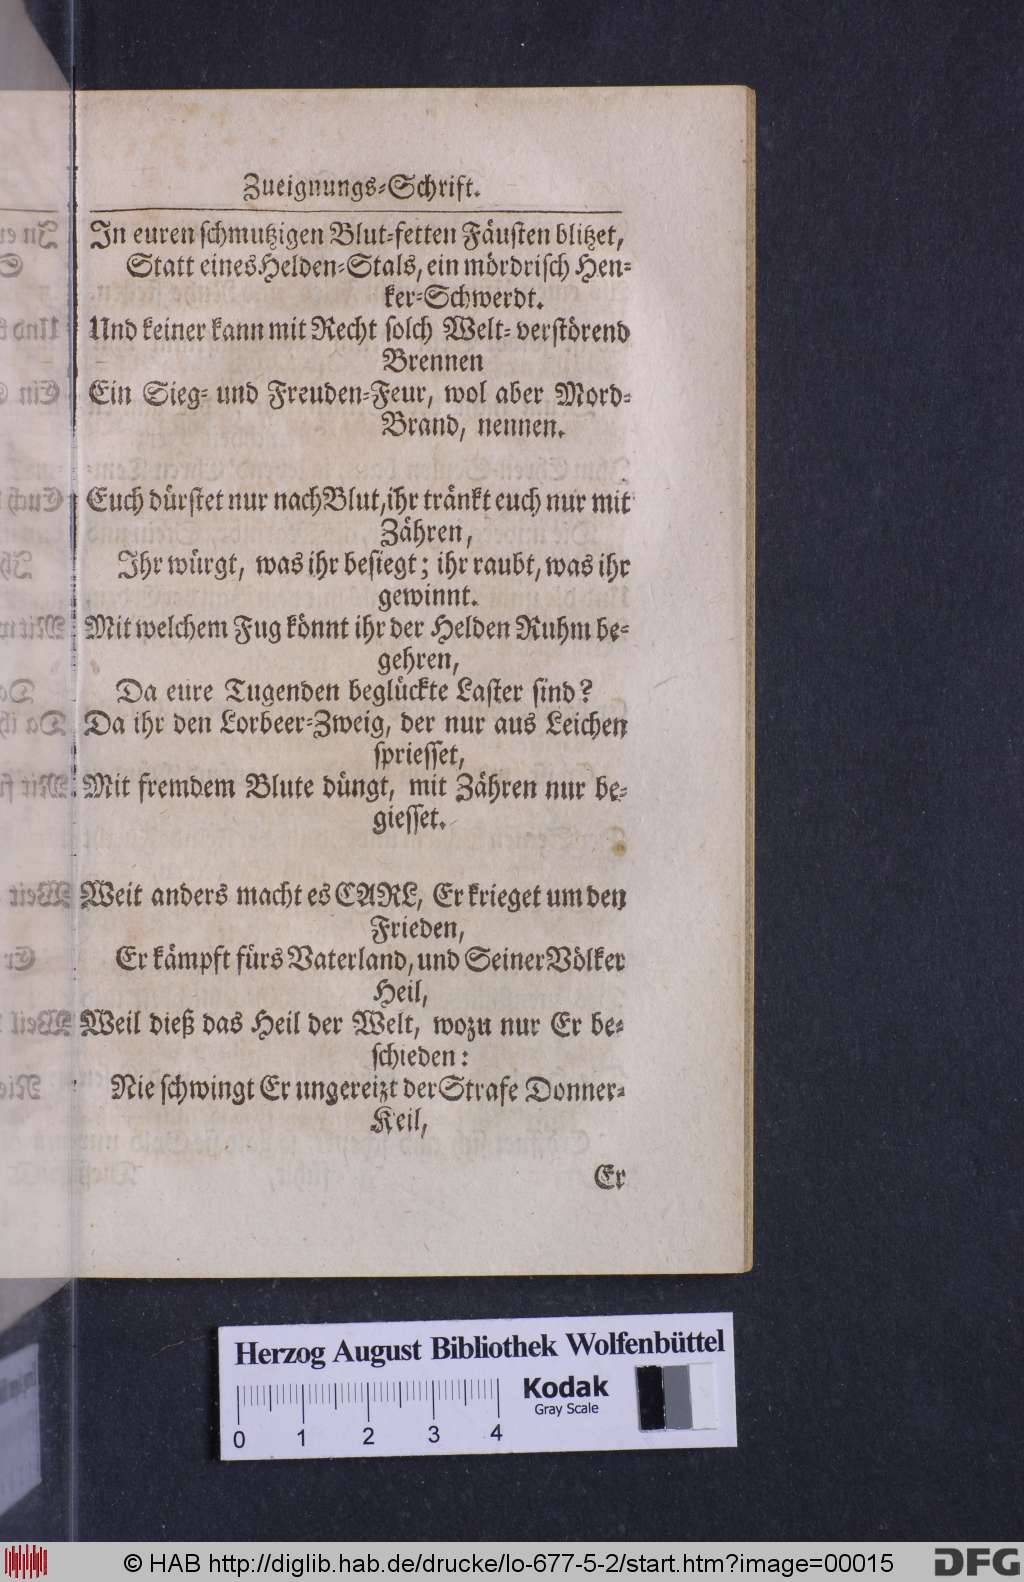 Zueignungs-Schrift.
In euren schmutzigen Blut-fetten Fäusten blitzet,
Statt eines Helden-Stals, ein mördrisch Hen-
ker-Schwerdt.
Und keiner kann mit Recht solch Welt-verstörend
Brennen
Ein Sieg- und Freuden-Feur, wol aber Mord-
Brand, nennen.
Euch dürstet nur nach Blut, ihr tränkt euch nur mit
Zähren,
Ihr würgt, was ihr besiegt; ihr raubt, was ihr
gewinnt.
Mit welchem Fug könnt ihr der Helden Ruhm be-
gehren,
Da eure Tugenden beglückte Laster sind?
Da ihr den Lorbeer-Zweig, der nur aus Leichen
spriesset,
Mit fremdem Blute düngt, mit Zähren nur be-
giesset.
Weit anders macht es CARL, Er krieget um den
Frieden,
Er kämpft fürs Vaterland, und Seiner Völker
Heil,
Weil dieß das Heil der Welt, wozu nur Er be-
schieden:
Nie schwingt Er ungereizt der Strafe Donner-
Keil,
Er
Herzog August Bibliothek Wolfenbüttel
Kodak
Gray Scale
0 1 2 3 4
© HAB http://diglib.hab.de/drucke/lo-677-5-2/start.htm?image=00015
DFG